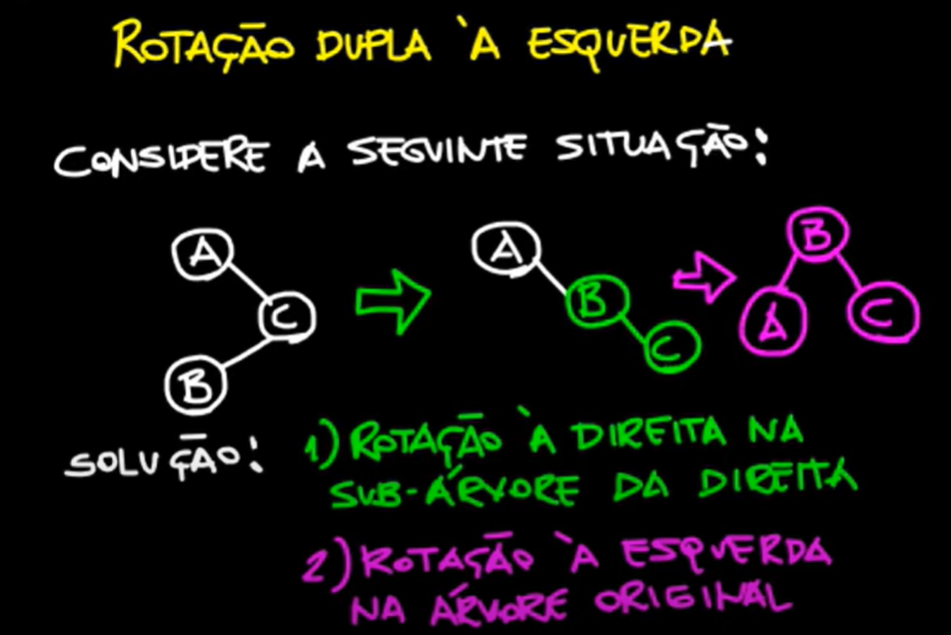 ROTAÇÃO DUPLA À ESQUERDA
CONSIDERE A SEGUINTE SITUAÇÃO:
A
C
B
A
B
C
B
A
C
SOLUÇÃO:
1) ROTAÇÃO À DIREITA NA
SUB-ÁRVORE DA DIREITA
2) ROTAÇÃO À ESQUERDA
NA ÁRVORE ORIGINAL